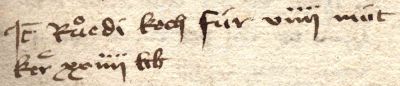 It Růedi koch fúr viiii mút
ker xxiiii lib